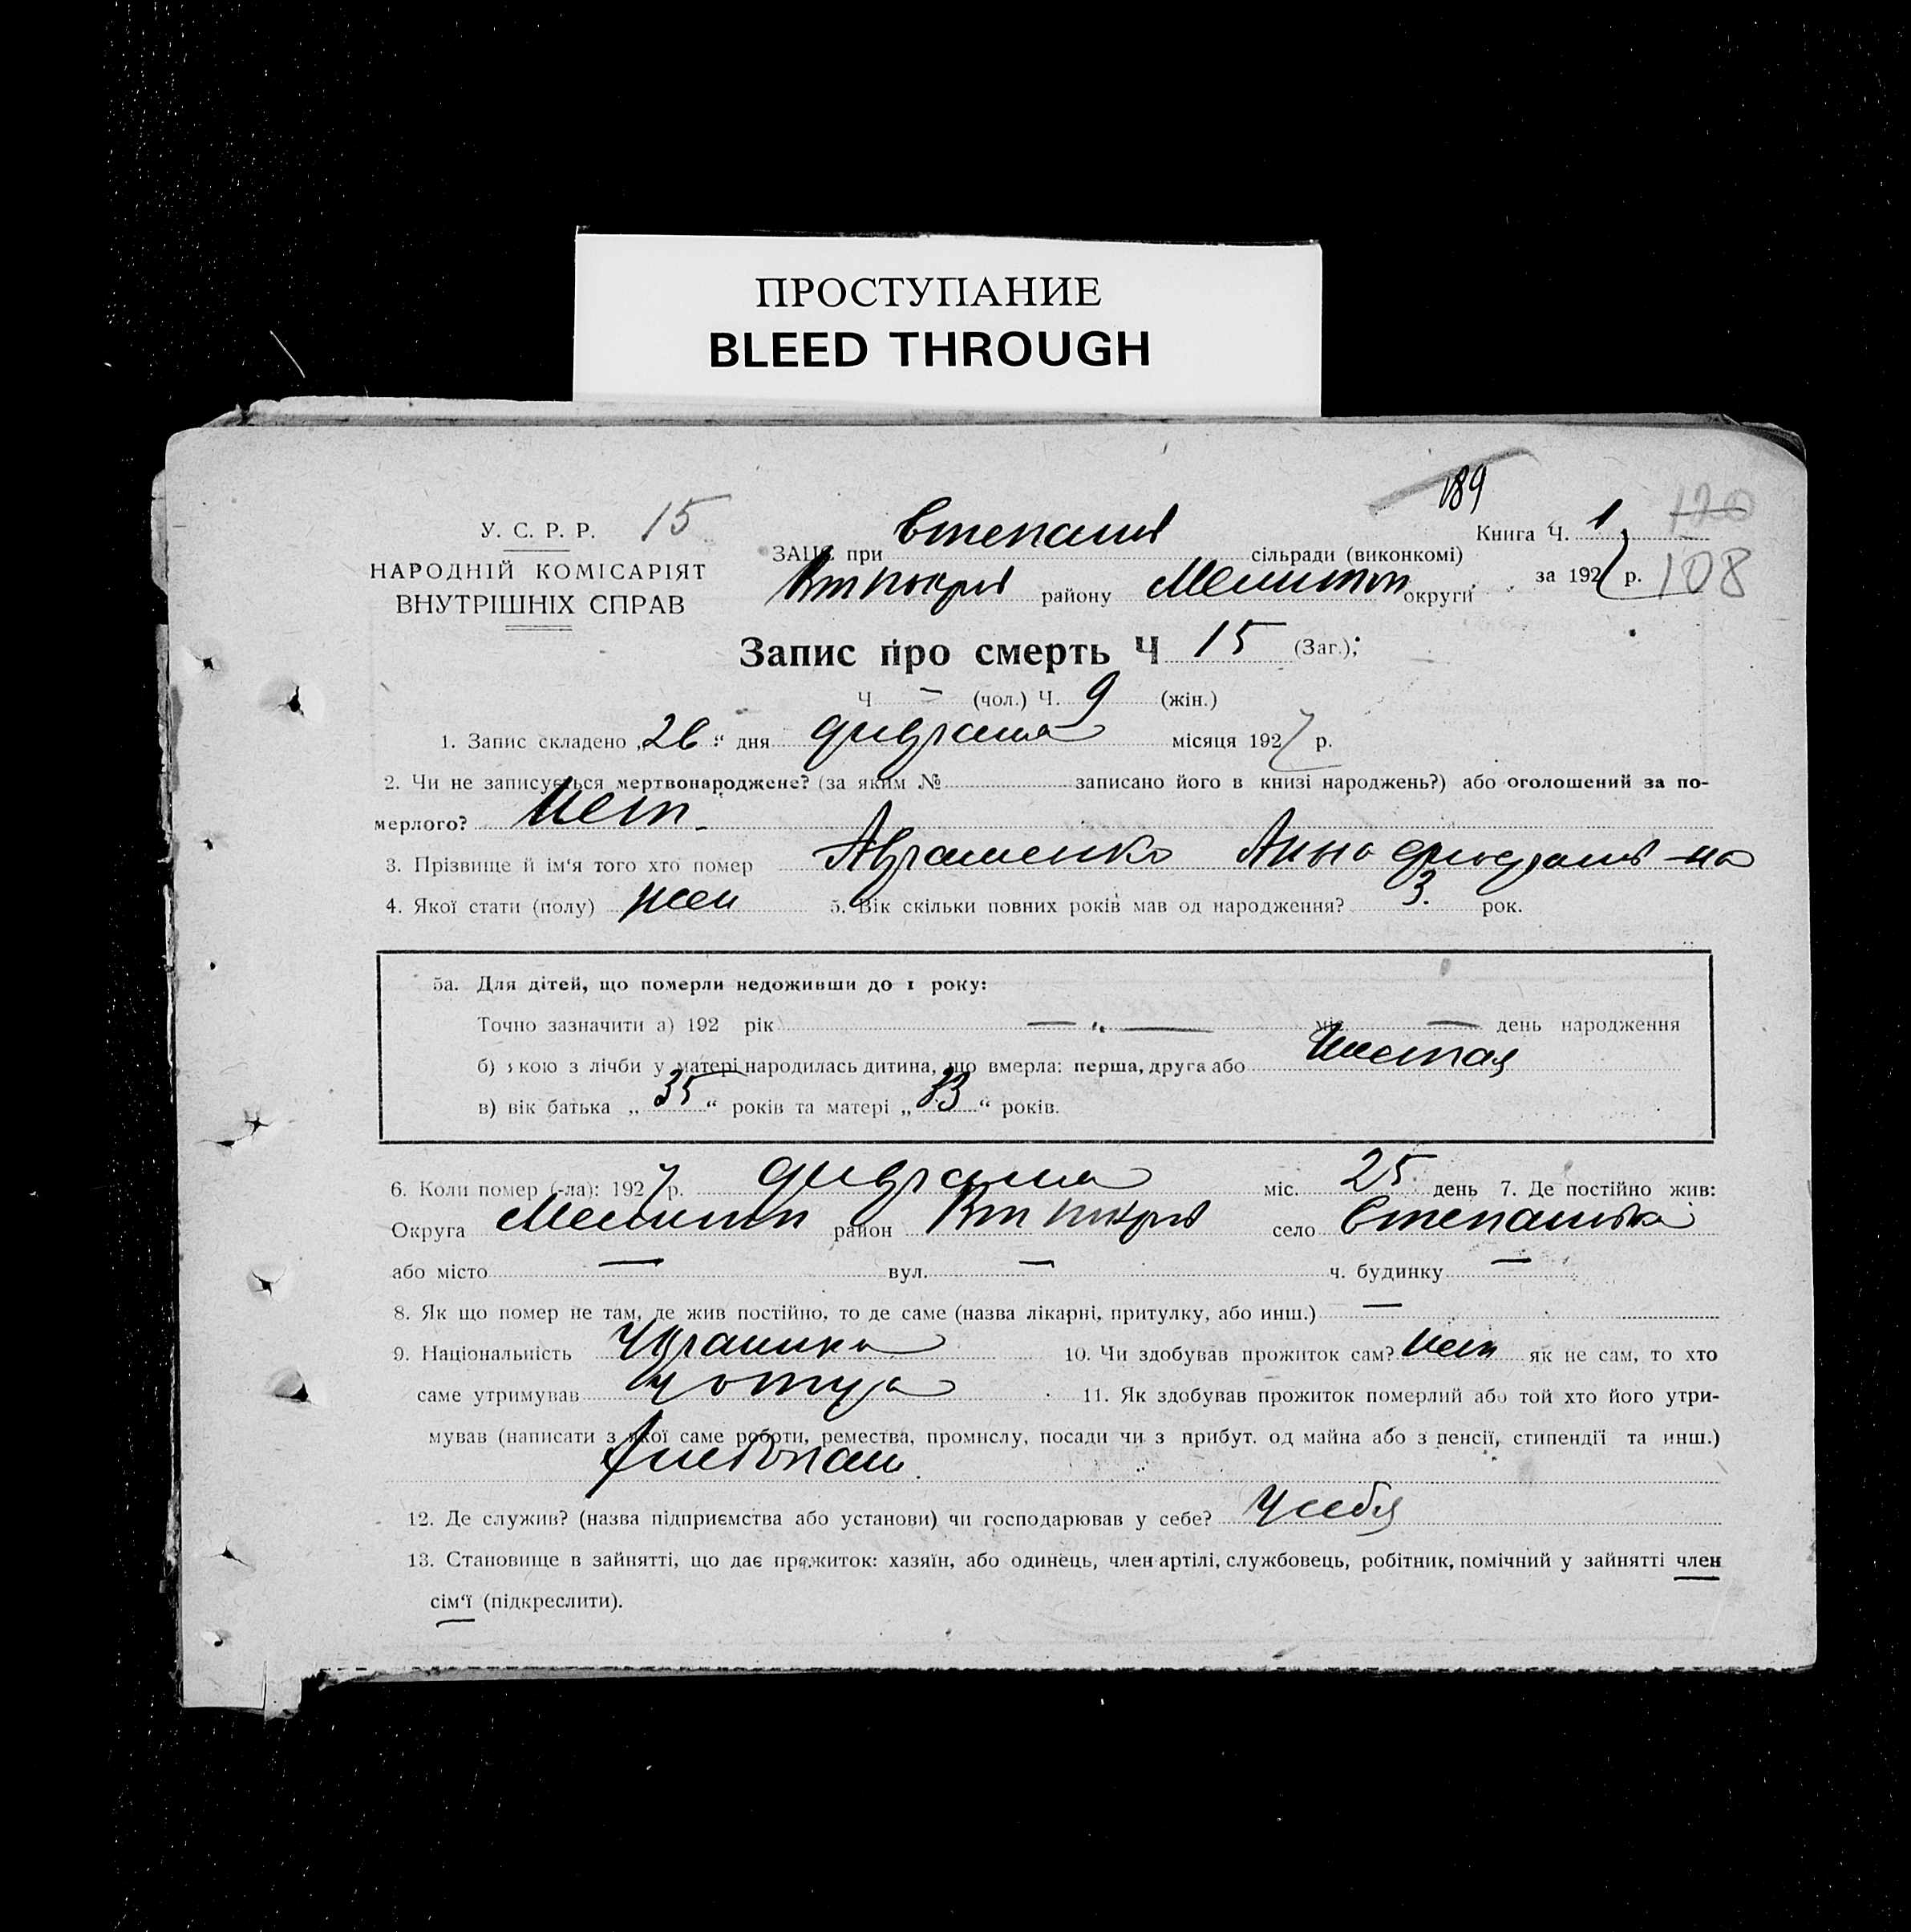 ПРОСТУПАНИЕ
BLEED THROUGH
189
У. С. Р. Р. 15
Книга Ч. 1 120
ЗАЦС при Степанів сільради (виконкомі)
НАРОДНІЙ КОМІСАРІЯТ
району Мелитоп округи за 1927 р. 108
ВНУТРІШНІХ СПРАВ
Запис про смерть Ч 15 (Заг.);
Ч — (чол.) Ч. 9 (жін.)
1. Запис складено „26“ дня февраля місяця 1927 р.
2. Чи не записується мертвонароджене? (за яким № записано його в книзі народжень?) або оголошений за по-
мерлого? Нет.
3. Прізвище й ім‘я того хто помер Авраменко Анна -на
4. Якої стати (полу) жен 5. Вік скільки повних років мав од народження? 3. рок.
5а. Для дітей, що померли недоживши до 1 року:
Точно зазначити а) 192 рік — „ — міс. — день народження
б) якою з лічби у матері народилась дитина, що вмерла: перша, друга або шестая
в) вік батька „ 35 “ років та матері „ 33 “ років.
6. Коли помер (-ла): 1927 р. февраля міс. 25 день 7. Де постійно жив:
Округа Мелитоп район село Степанівка
або місто — вул. — ч. будинку —
8. Як що помер не там, де жив постійно, то де саме (назва лікарні, притулку, або инш.) —
9. Національність Украинка 10. Чи здобував прожиток сам? Нет як не сам, то хто
саме утримував 11. Як здобував прожиток померлий або той хто його утри-
мував (написати з якої саме роботи, ремества, промислу, посади чи з прибут. од майна або з пенсії, стипендії та инш.)
12. Де служив? (назва підприємства або установи) чи господарював у себе? У себя
13. Становище в зайнятті, що дає прожиток: хазяїн, або одинець, член артілі, службовець, робітник, помічний у зайнятті член
сім‘ї (підкреслити).